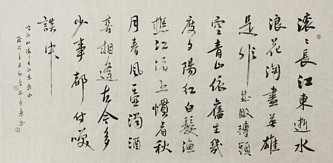 滚々長江東逝水
浪花淘盡英雄
是非成敗轉頭
空青山依舊在幾
度夕陽紅白髮漁
樵江渚上慣看秋
月春風一壺濁酒
喜相逢古今多
少事都付笑
談中